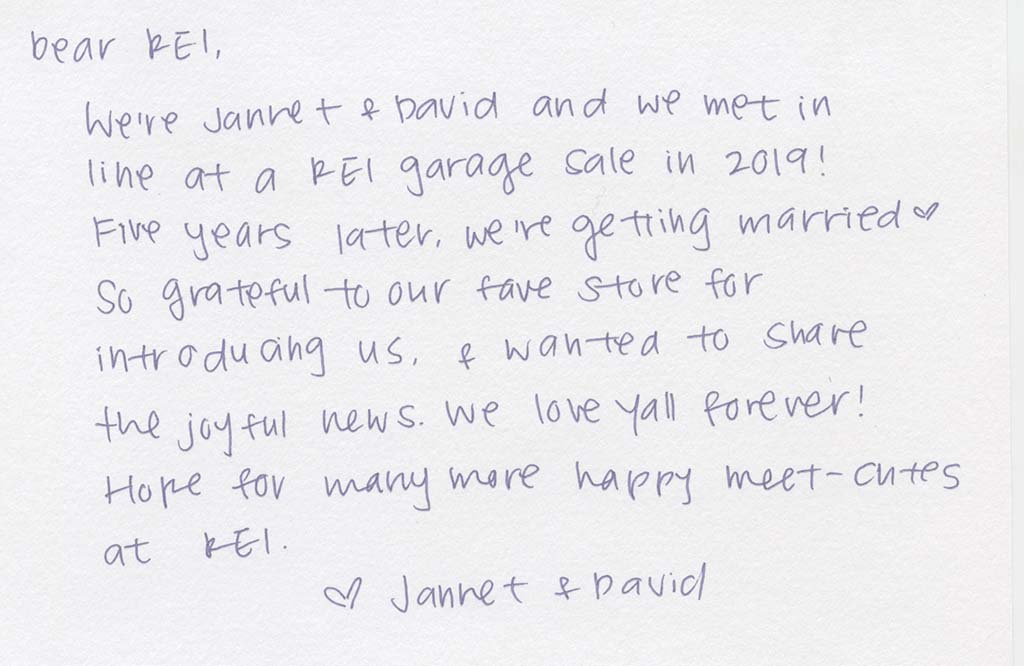 Dear REI,
We're Jannet & David and we met in
line at a REI garage sale in 2019!
Five years later, we're getting married ♡
So grateful to our fave store for
introducing us, & wanted to share
the joyful news. We love yall forever!
Hope for many more happy meet-cutes
at REI.
♡ Jannet & David